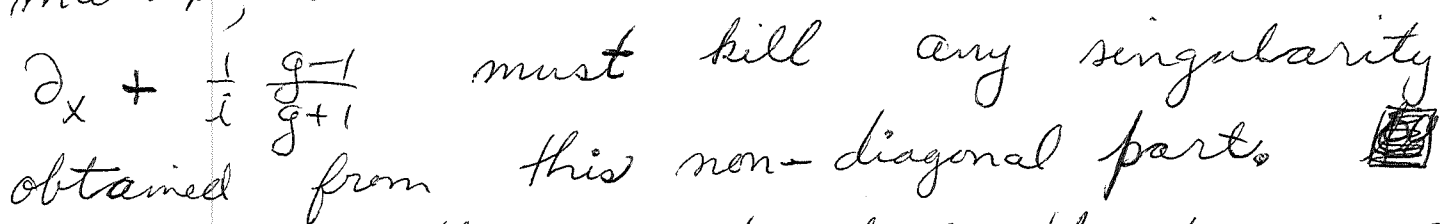 ∂_x + \frac{1}{i} \frac{g-1}{g+1} must kill any singularity
obtained from this non-diagonal part.